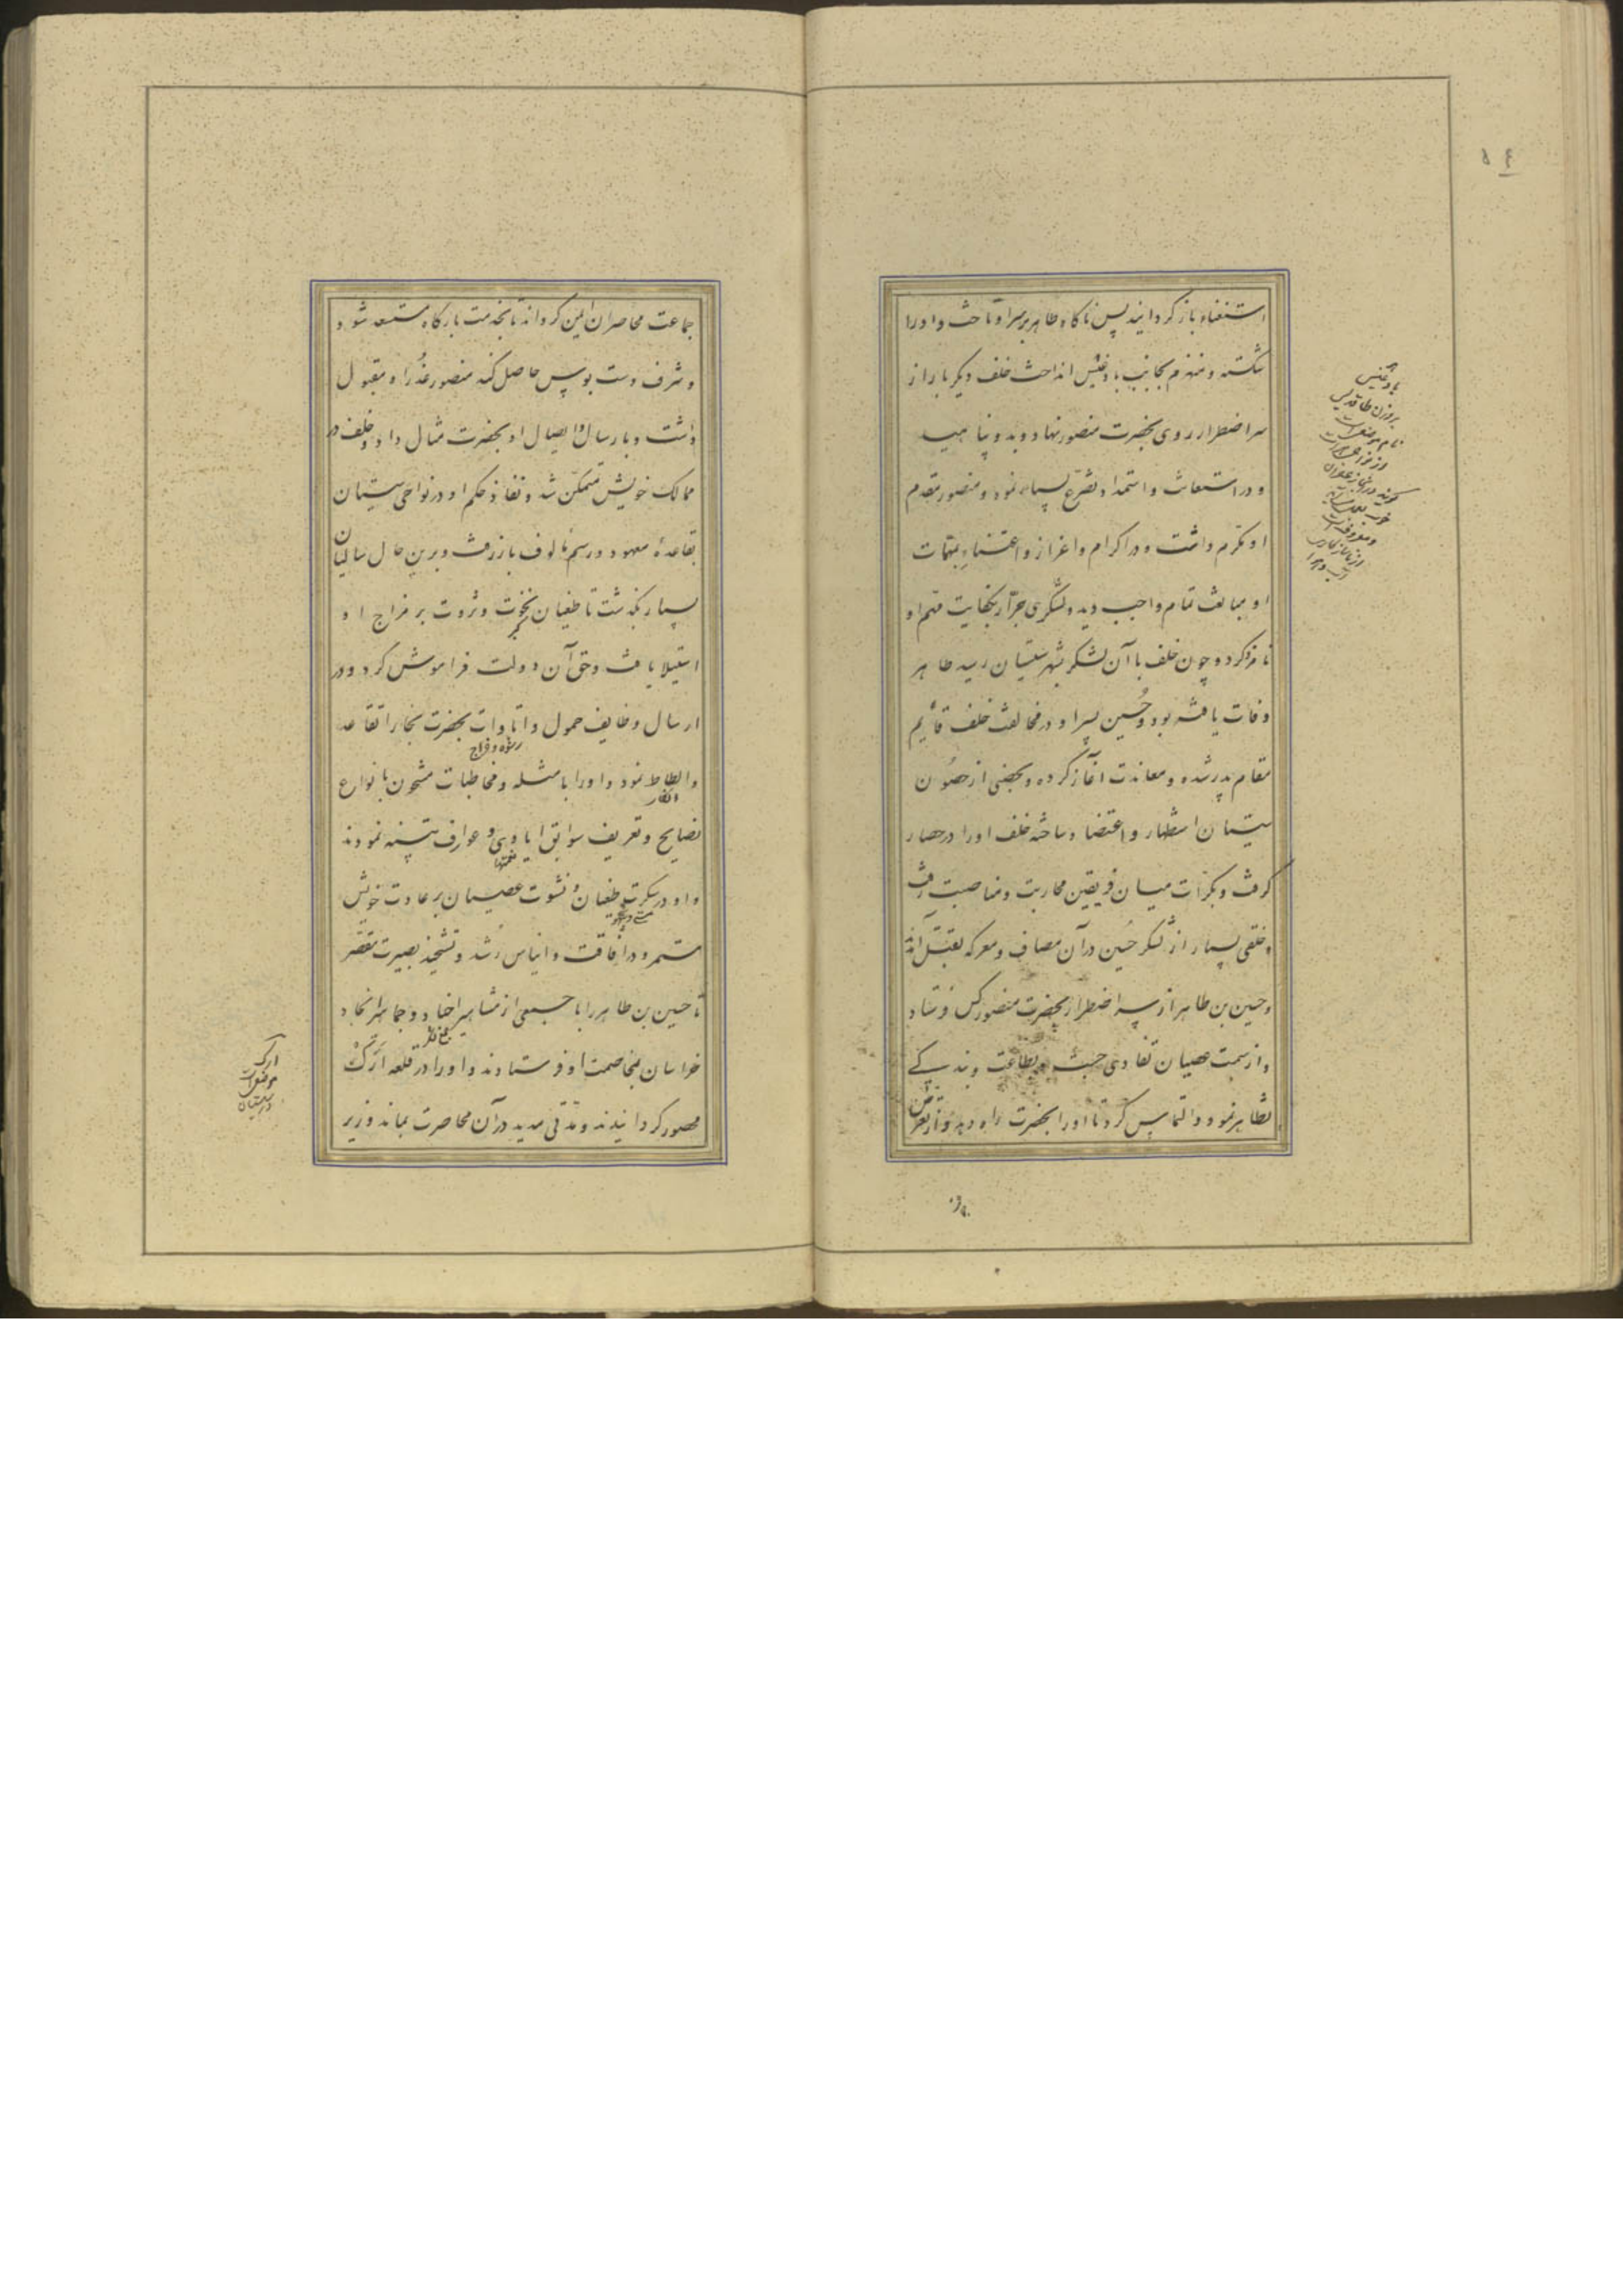 ۵۴
استغناء باز گردانید پس ناگاه طاهر بر سر او تاخت و او را
شکسته و منهزم بجانب بادغیس انداخت خلف دیگر بار از
سر اضطرار روی بحضرت منصور نهاد و بدو پناهید
و در استعانت و استمداد تضرع بسیار نمود و منصور مقدم
او مکرم داشت و در اکرام و اعزاز و اعتناء بمهمات
او مبالغت تمام واجب دید و لشکری جرار بکفایت مهم او
نامزد کرد و چون خلف با آن لشکر بشهر سیستان رسید طاهر
وفات یافته بود و حسین پسر او در مخالفت خلف قائم
مقام پدر شده و معاندت آغاز کرده و بعضی از حصون
سیستان استظهار و اعتضاد ساخته خلف او را در حصار
گرفت و بکرات میان فریقین محاربت و مناصبت رفت
و خلقی بسیار از لشکر حسین در آن مصاف و معرکه بقتل آمدند
و حسین بن طاهر از سر اضطرار بحضرت منصور کس فرستاد
و از سمت عصیان تفادی جست و بطاعت و بندگی
تظاهر نمود و التماس کرد تا او را بحضرت راه دهد و از تعرض
بادغیس
جماعت محاصران ایمن گرداند تا بخدمت بارگاه مستسعد شود
و شرف دست بوس حاصل کند منصور عذر او مقبول
داشت و بارسال و ایصال او بحضرت مثال داد و خلف در
ممالک خویش متمکن شد و نفاذ حکم او در نواحی سیستان
بقاعدهٔ معهود و رسم مألوف باز رفت و برین حال سالیان
بسیار بگذشت تا طغیان نخوت و ثروت بر مزاج او
استیلا یافت و حق آن دولت فراموش کرد و در
ارسال وظایف حمول و اتاوات بحضرت بخارا تقاعد
رشوه و خراج
و الطاط نمود و او را بامثله و مخاطبات مشحون بانواع
انکار
نصایح و تعریف سوابق ایادی و عوارف تنبیه نمودند
و او در سکرت طغیان و نشوت عصیان بر عادت خویش
مستمر و در افاقت و ایناس رشد و تشحیذ بصیرت مقصر
تا حسین بن طاهر را با جمعی از مشاهیر اجناد و جماهیر انجاد
خراسان بمخاصمت او فرستادند و او را در قلعه ارک
محصور گردانیدند و مدتی مدید در آن محاصرت بماند و زیر
ارک
موضعیست
در سیستان